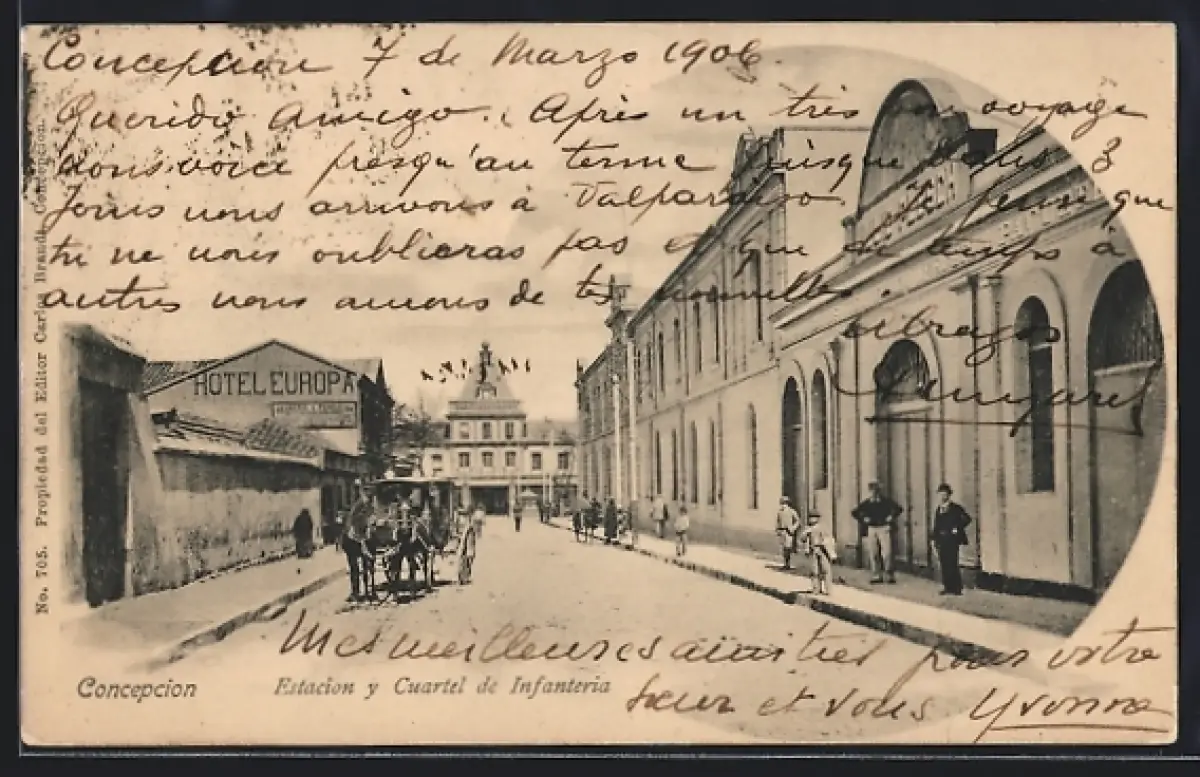 Concepcion 7 de Marzo 1906.
Querido Amigo. Après un très voyage
nous voice presqu'au terme jusque dans 3
Jours nous arrivons à Valparaiso. Je pense que
tu ne nous oublieras pas et que de temps à
autres nous aurons de tes nouvelles.
abrazos
HOTEL EUROPA
Mes meilleures amitiés pour votre
sœur et vous Yvonne
Concepcion
Estacion y Cuartel de Infanteria
No. 705. Propiedad del Editor Carlos Brandt, Concepcion.